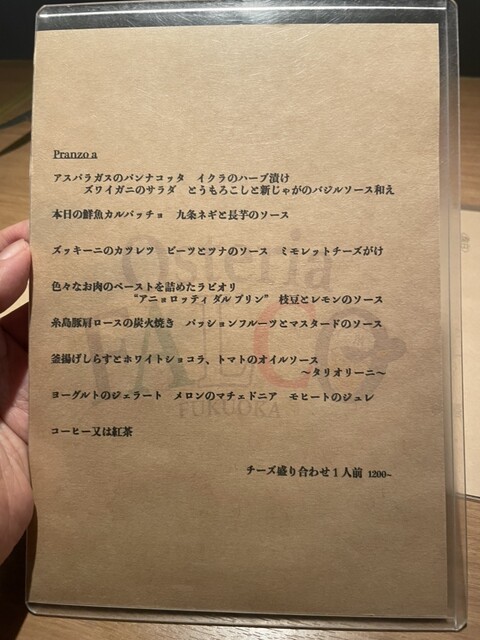 Pranzo a
アスパラガスのパンナコッタ　イクラのハーブ漬け
ズワイガニのサラダ　とうもろこしと新じゃがのバジルソース和え
本日の鮮魚カルパッチョ　九条ネギと長芋のソース
ズッキーニのカツレツ　ビーツとツナのソース　ミモレットチーズがけ
色々なお肉のペーストを詰めたラビオリ
“アニョロッティ ダル プリン”　枝豆とレモンのソース
糸島豚肩ロースの炭火焼き　パッションフルーツとマスタードのソース
釜揚げしらすとホワイトショコラ、トマトのオイルソース
～タリオリーニ～
ヨーグルトのジェラート　メロンのマチェドニア　モヒートのジュレ
コーヒー又は紅茶
チーズ盛り合わせ１人前 1200-
Osteria
FALCO
FUKUOKA